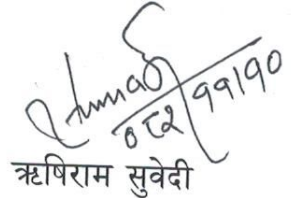 ०८२/११/१०
ऋषिराम सुवेदी